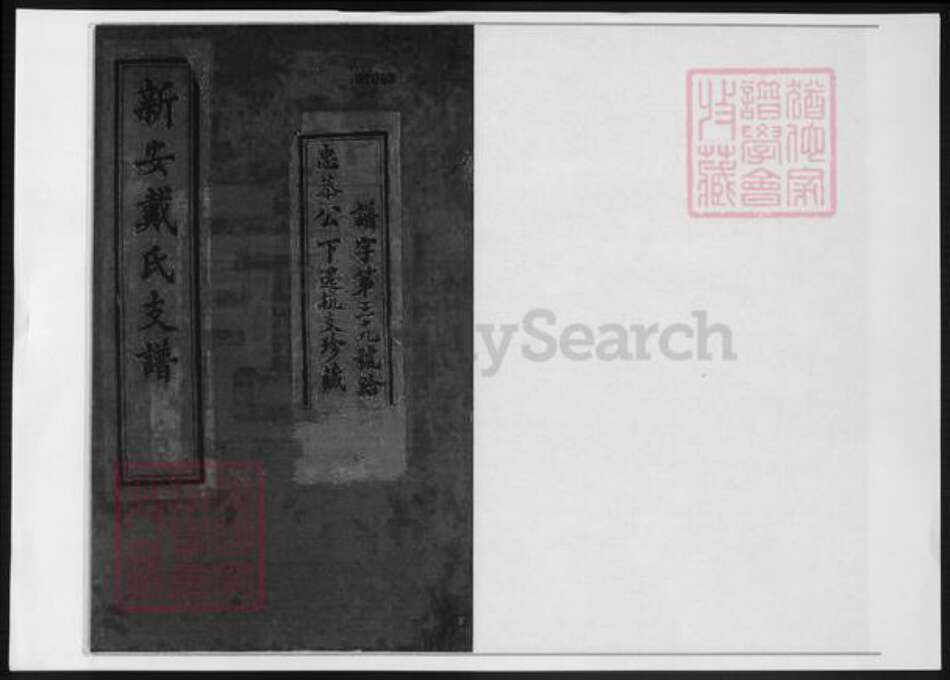 譜字第三十九號給
忠恭公下遷杭支珍藏
新安戴氏支譜
猶他家
譜學會
收藏
ySearch